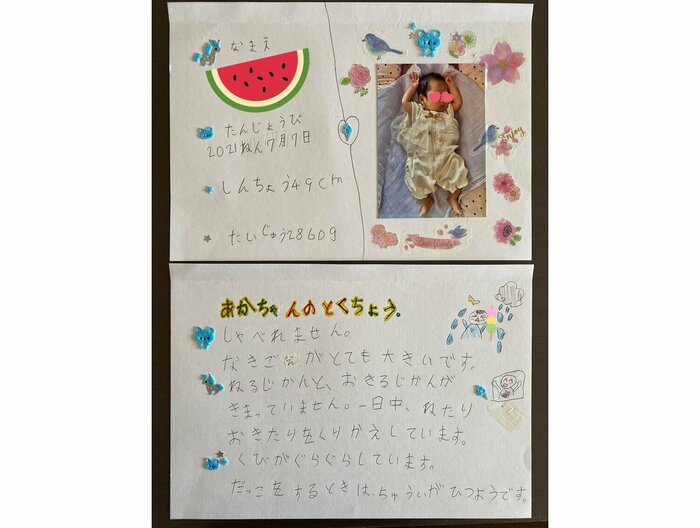 なまえ
たんじょうび
2021ねん7月7日
しんちょう49cm
たいじゅう2860g
enjoy
あかちゃんのとくちょう。
しゃべれません。
なきごえがとても大きいです。
ねるじかんと、おきるじかんが
きまっていません。一日中、ねたり
おきたりをくりかえしています。
くびがぐらぐらしています。
だっこをするときは、ちゅういがひつようです。